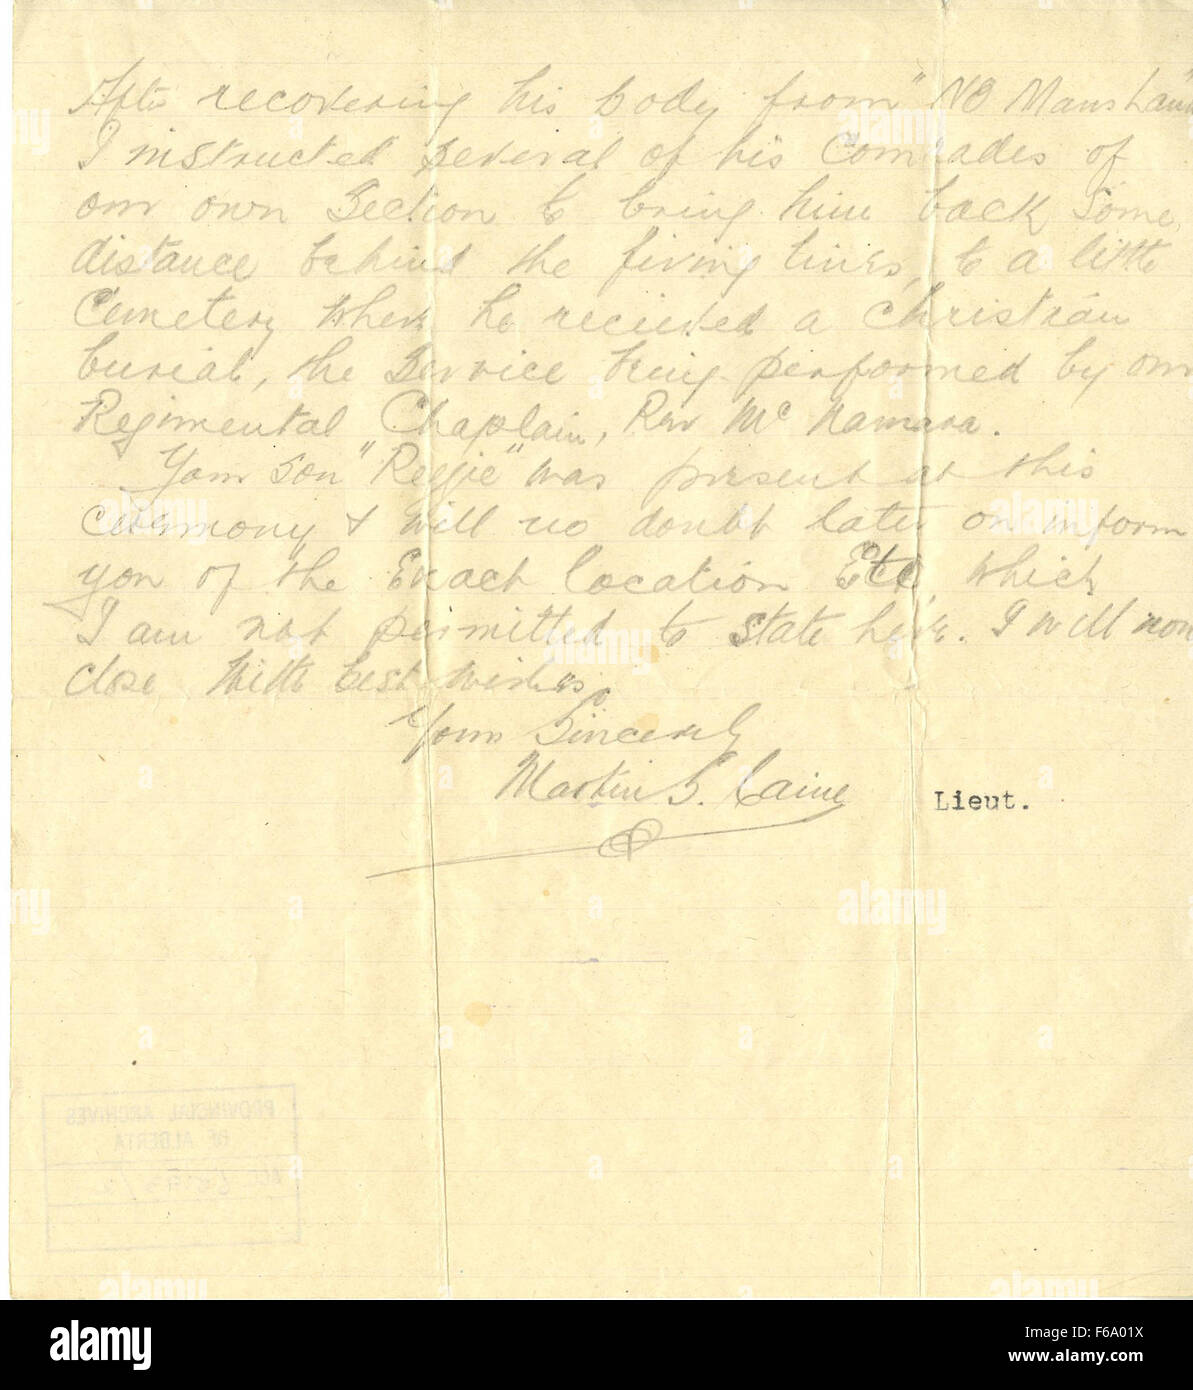 After recovering his body from "No Mansland"
I instructed several of his Comrades of
our own Section to bring him back some
distance behind the firing lines, to a little
Cemetery where he recieved a Christian
burial, the Service being performed by our
Regimental Chaplain, Rev Mc Namara.
Your son "Regie" was present at this
ceremony & will no doubt later on inform
you of the Exact location Etc, which
I am not permitted to state here. I will now
close with best wishes,
Yours Sincerely
Martin S. Caine
Lieut.
PROVINCIAL ARCHIVES
OF ALBERTA
ACC.
alamy
Image ID: F6A01X
www.alamy.com